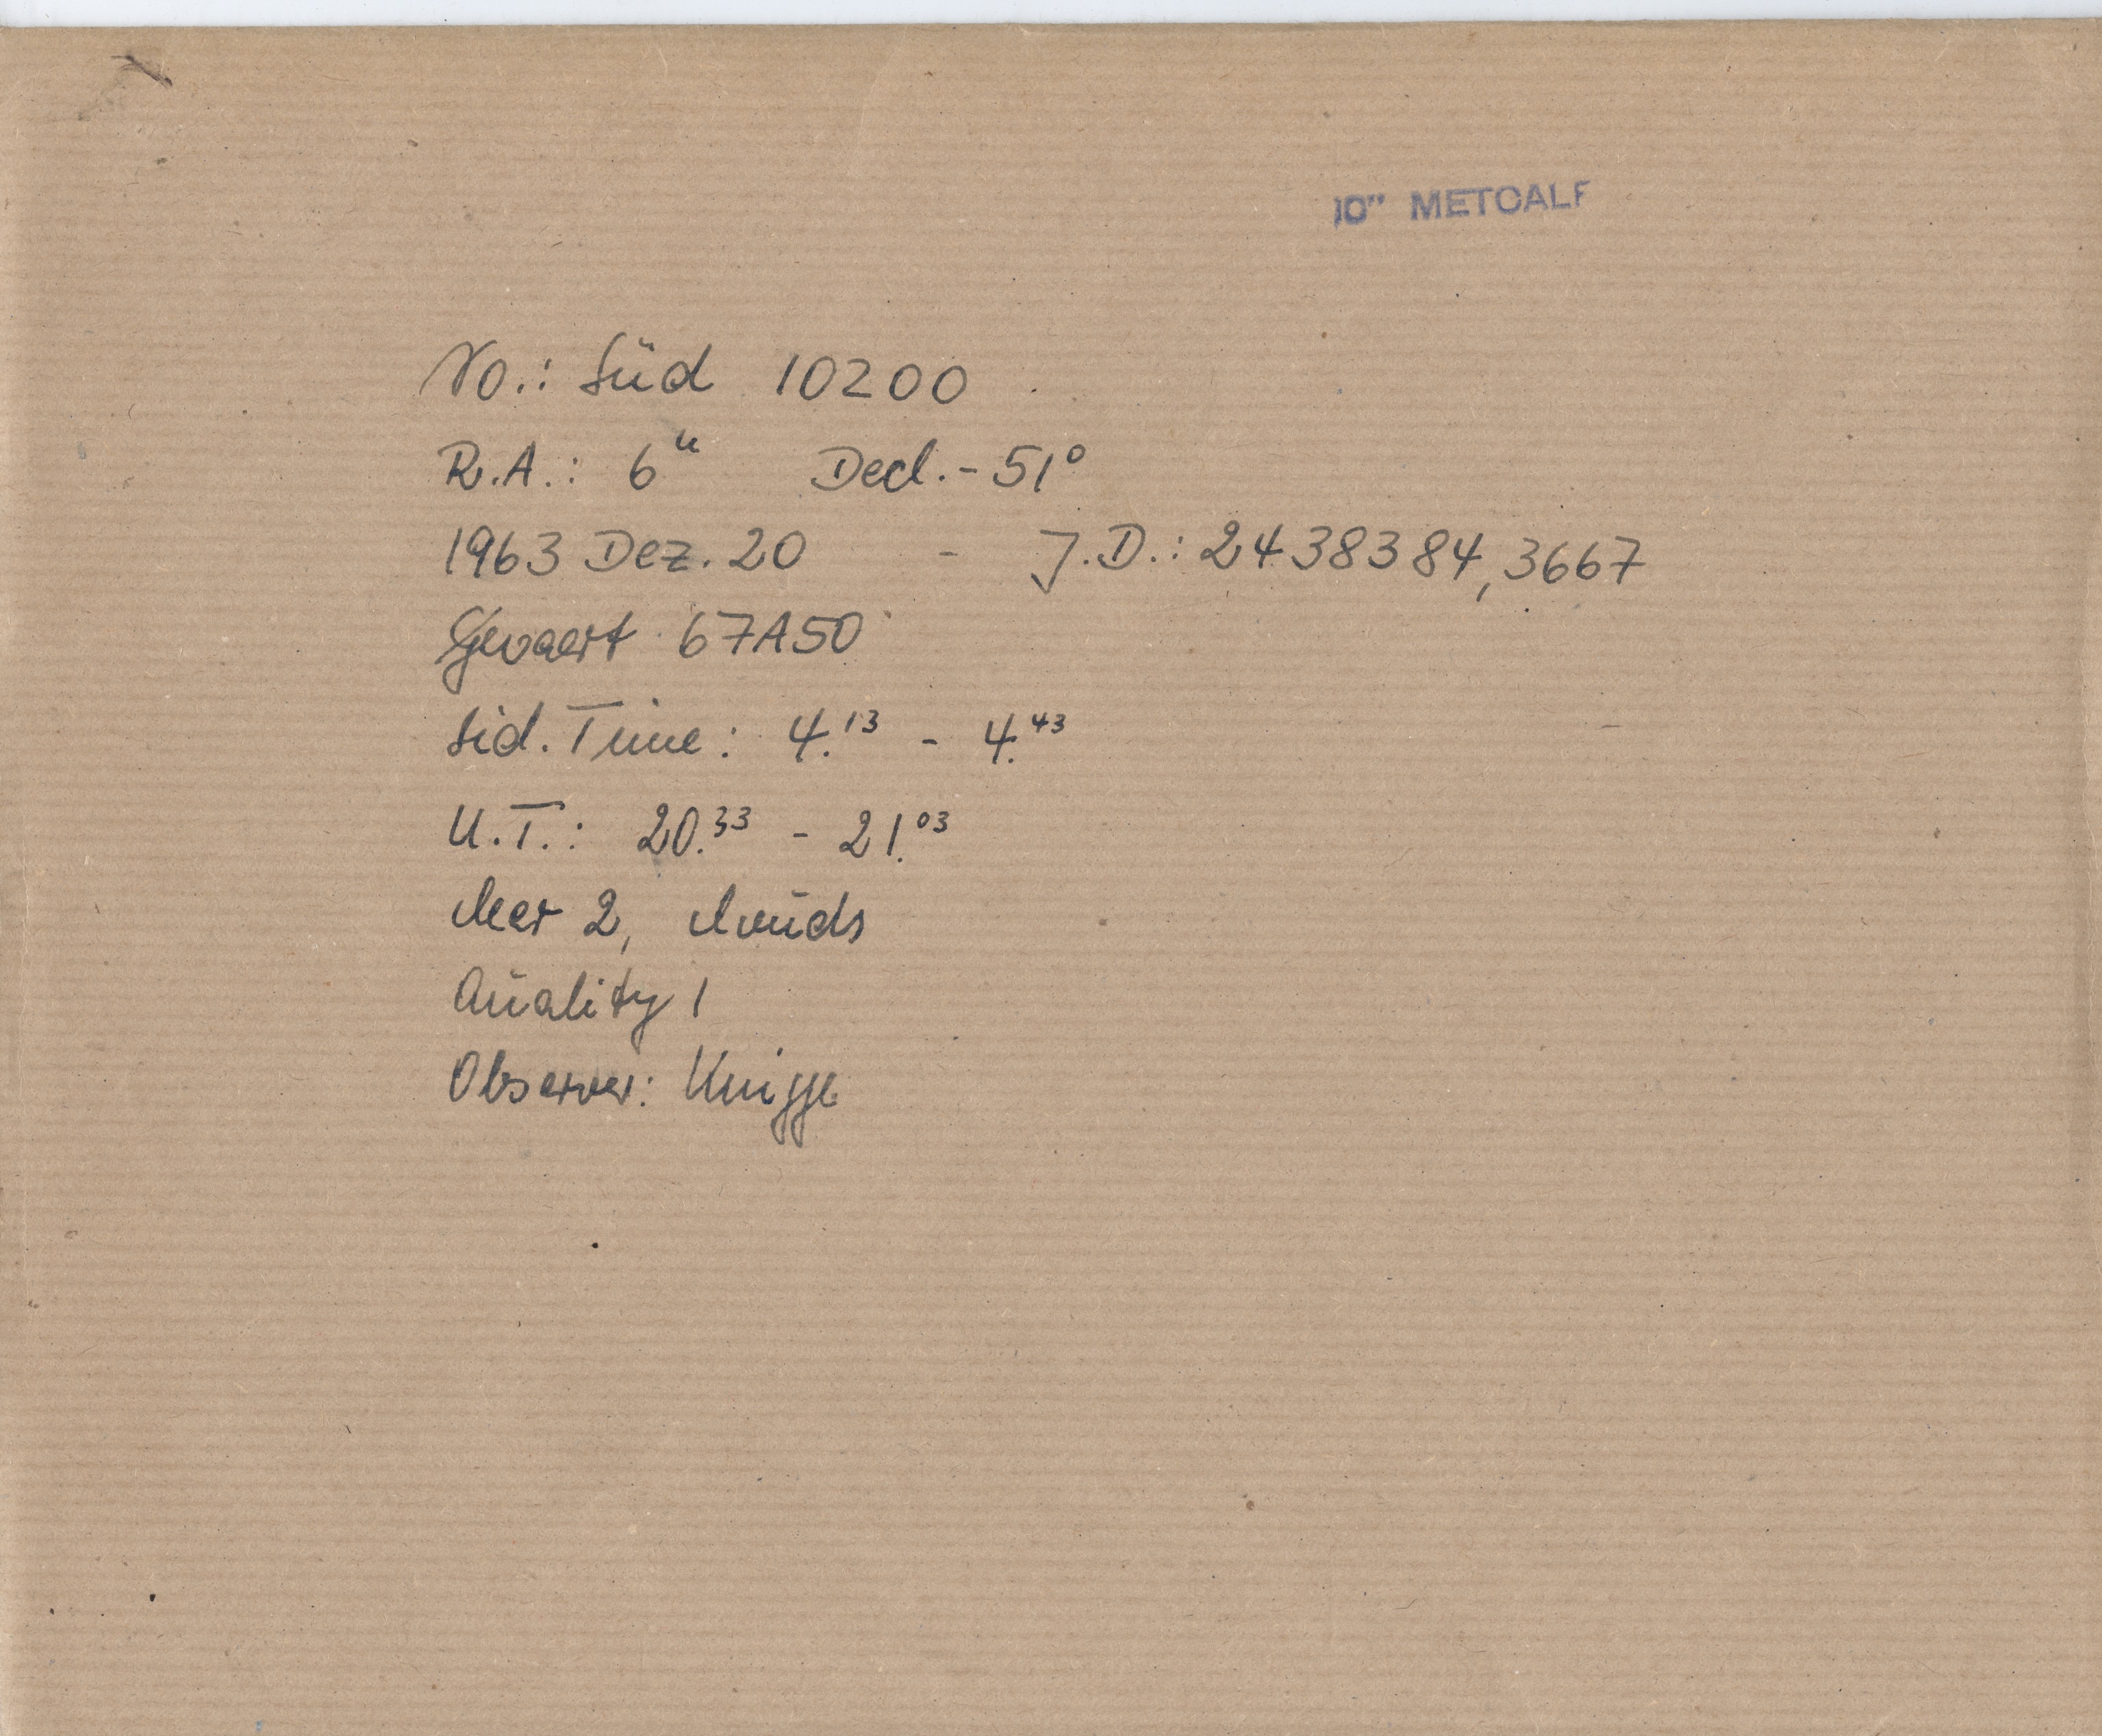 10" METCALF
No.: Süd 10200
R.A.: 6ʰ Decl. - 51°
1963 Dez. 20 - J.D.: 2438384,3667
Gevaert 67A50
Sid. Time: 4.¹³ - 4.⁴³
U.T.: 20.³³ - 21.⁰³
clear 2, clouds
Quality 1
Observer: Knigge